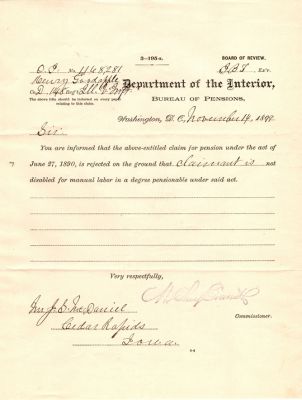 3-1954.
BOARD OF REVIEW.
No. 468,281
Henry
Ill.
The above title should be inscribed on every paper relating to this claim.
Department of the Interior,
BUREAU OF PENSIONS,
Washington, D. C., November 14, 1899
Sir:
You are informed that the above-entitled claim for pension under the act of
June 27, 1890, is rejected on the ground that claimant is not
disabled for manual labor in a degree pensionable under said act.
Very respectfully,
Commissioner.
McDaniel
Cedar Rapids
Iowa